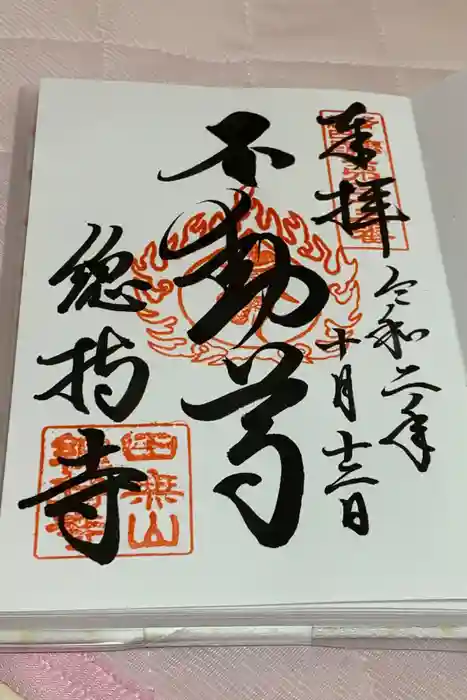 奉拝
令和二年
十月十三日
不動尊
總持寺
田無山